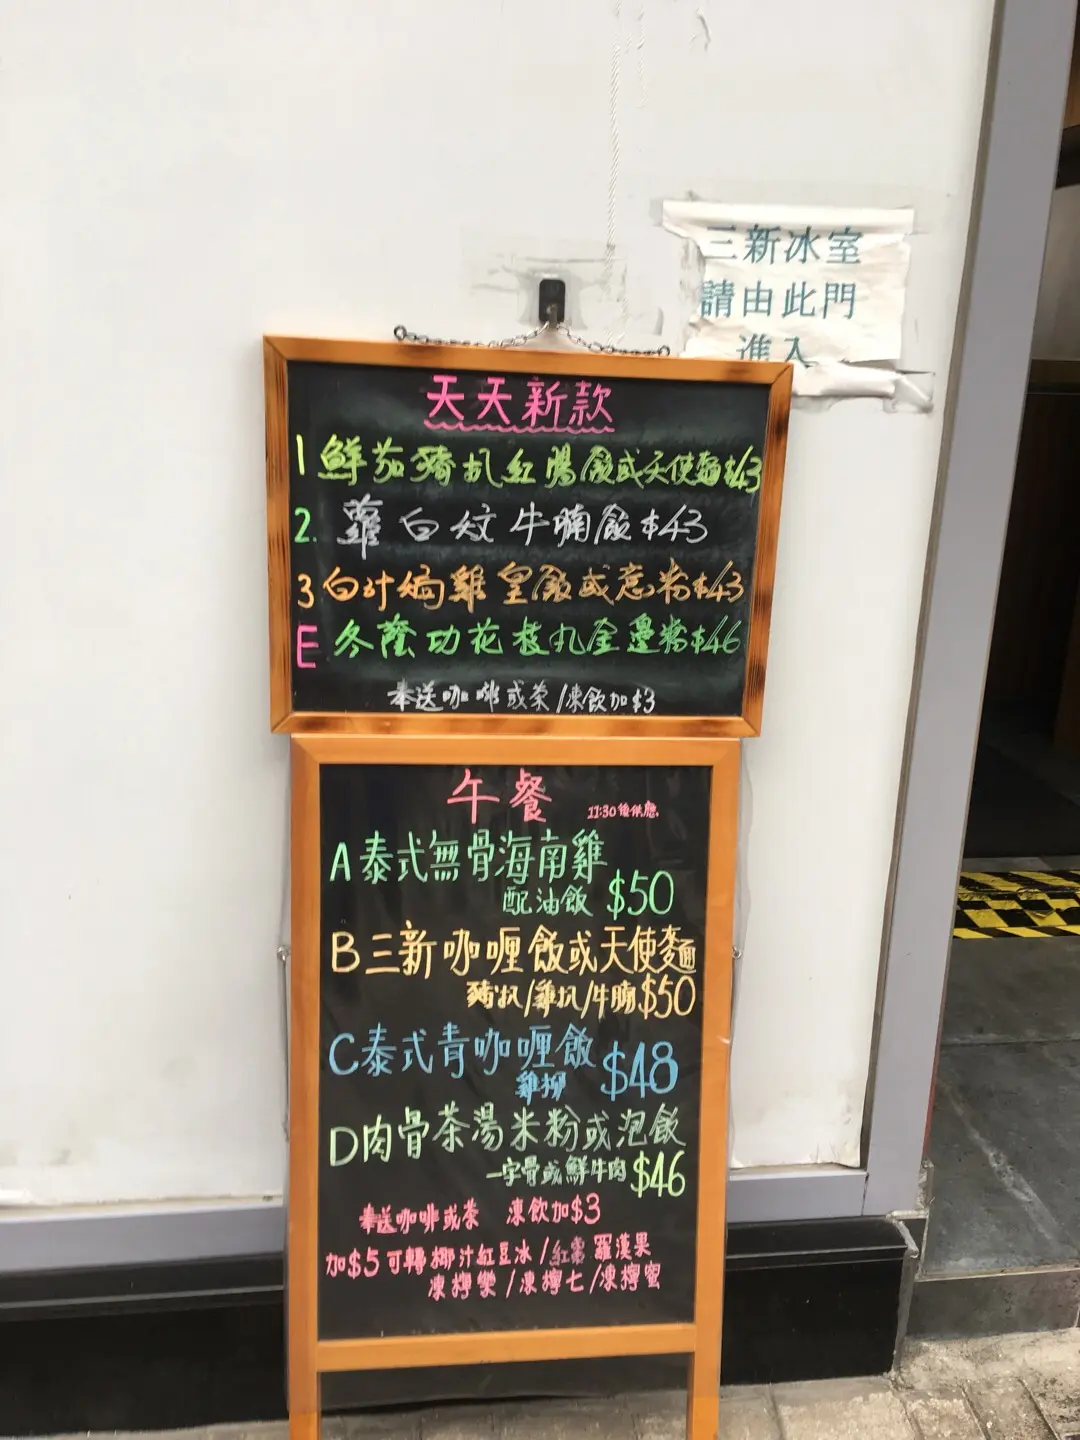 三新冰室
請由此門
進入
天天新款
1 鮮茄豬扒紅腸飯或天使麵$43
2. 蘿白炆牛腩飯$43
3 白汁焗雞皇飯或意粉$43
E 冬蔭功花枝丸金邊粉$46
奉送咖啡或茶/凍飲加$3
午餐 11:30後供應
A泰式無骨海南雞
配油飯 $50
B三新咖喱飯或天使麵
豬扒/雞扒/牛腩$50
C泰式青咖喱飯
雞柳 $48
D肉骨茶湯米粉或泡飯
一字骨或鮮牛肉 $46
奉送咖啡或茶 凍飲加$3
加$5可轉椰汁紅豆冰/紅棗羅漢果
凍檸樂/凍檸七/凍檸蜜